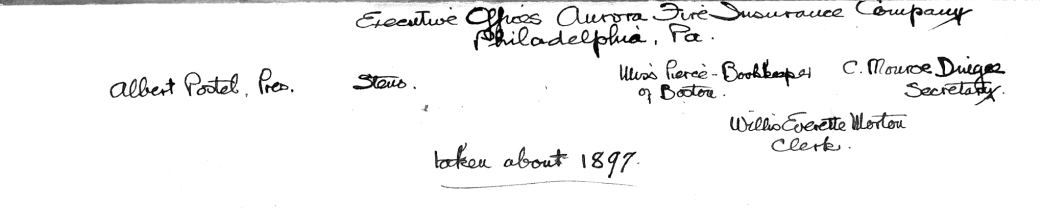 Executive Offices Aurora Fire Insurance Company
Philadelphia, Pa.
Albert Postel, Pres. Steno. Miss Pierce - Bookkeeper C. Monroe
of Boston. Secretary
Willis Everette Morton
Clerk.
taken about 1897.